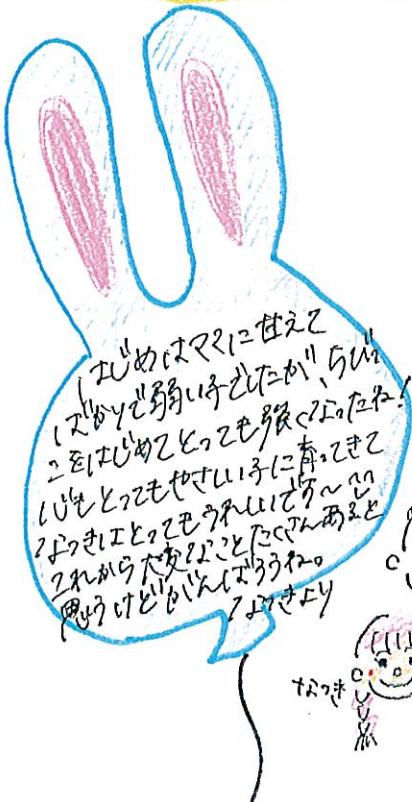 はじめはママに甘えて
ばかりで弱い子でしたが、ちび
こをはじめてとっても強くなったね!
心もとってもやさしい子に育ってきて
なつきはとってもうれしいです〜
これから大変なことたくさんあると
思うけどがんばろうね。
なつきより
なつき